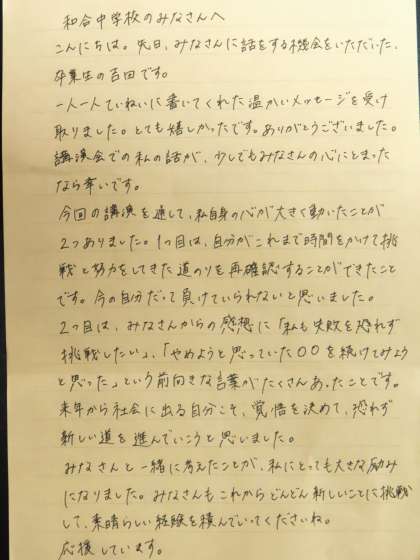 和合中学校のみなさんへ
こんにちは。先日、みなさんに話をする機会をいただいた、
卒業生の百田です。
一人一人ていねいに書いてくれた温かいメッセージを受け
取りました。とても嬉しかったです。ありがとうございました。
講演会での私の話が、少しでもみなさんの心にとまった
なら幸いです。
今回の講演を通して、私自身の心が大きく動いたことが
2つありました。1つ目は、自分がこれまで時間をかけて挑
戦と努力をしてきた道のりを再確認することができたこと
です。今の自分だって負けていられないと思いました。
2つ目は、みなさんからの感想に「私も失敗を恐れず
挑戦したい」、「やめようと思っていた○○を続けてみよう
と思った」という前向きな言葉がたくさんあったことです。
来年から社会に出る自分こそ、覚悟を決めて、恐れず
新しい道を進んでいこうと思いました。
みなさんと一緒に考えたことが、私にとっても大きな励み
になりました。みなさんもこれからどんどん新しいことに挑戦
して、素晴らしい経験を積んでいってくださいね。
応援しています。